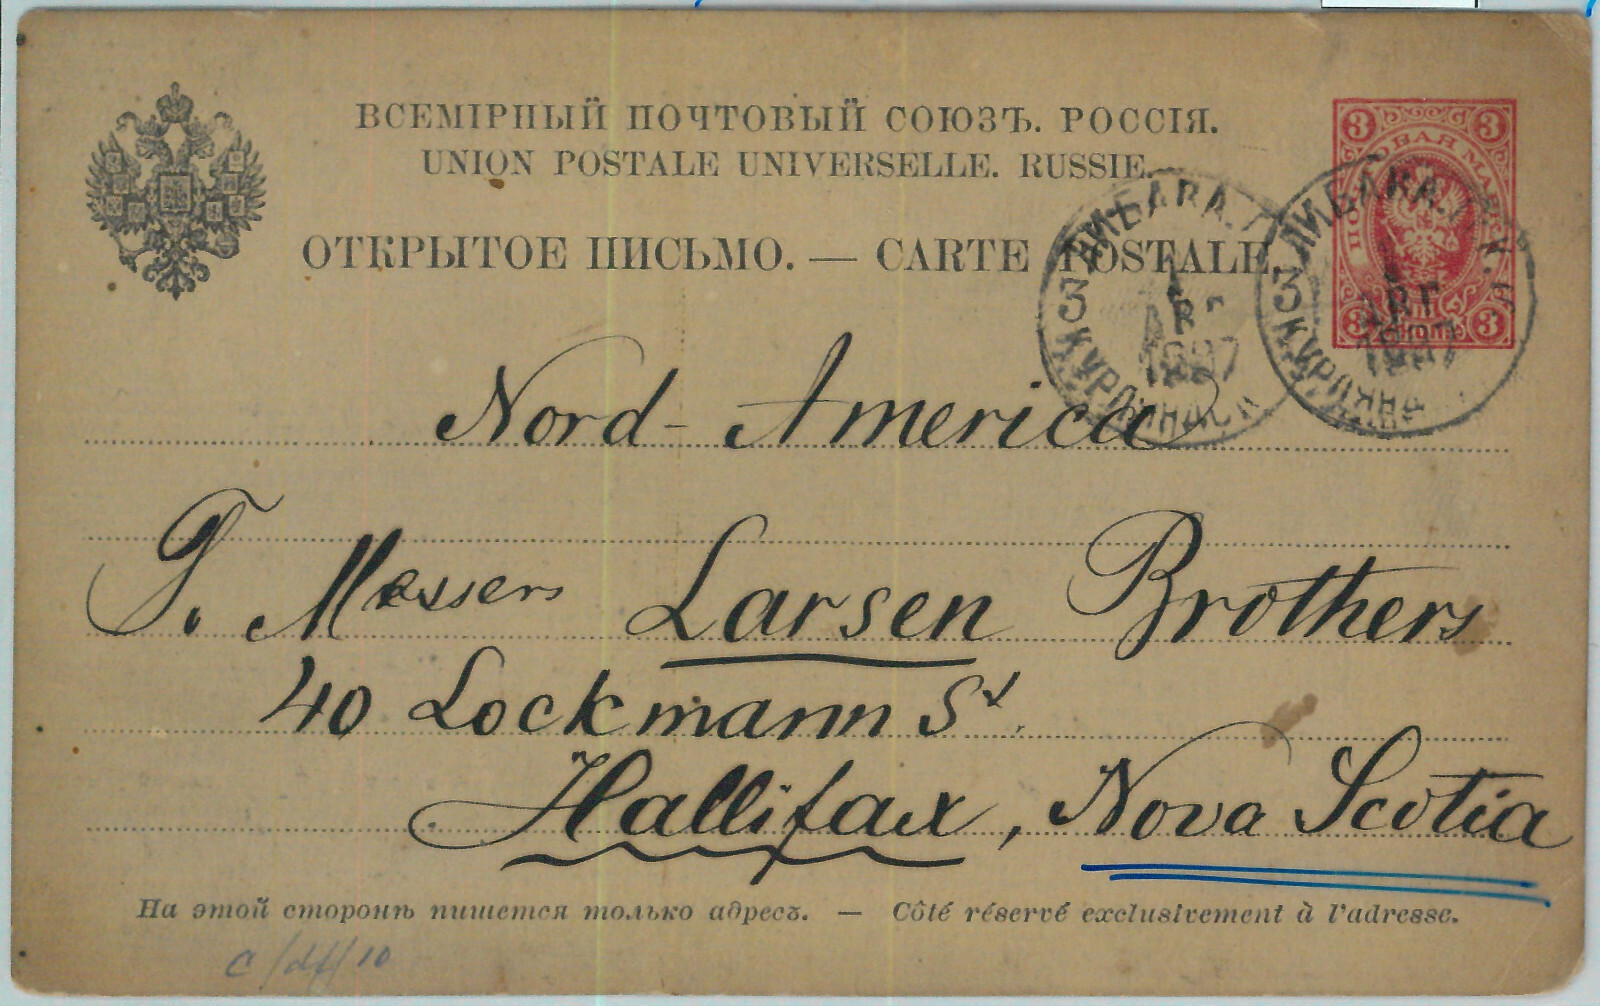 ВСЕМІРНЫЙ ПОЧТОВЫЙ СОЮЗЪ. РОССІЯ.
UNION POSTALE UNIVERSELLE. RUSSIE.
ОТКРЫТОЕ ПИСЬМО. — CARTE POSTALE.
3 3
ПОЧТОВАЯ МАРКА
3 3
ЛИБАВА. 3
АВГ
1897
ЛИБАВА. 3
АВГ
1897
Nord-America
T. Messers Larsen Brothers
40 Lockmann St.
Hallifax, Nova Scotia
На этой сторонѣ пишется только адресъ. — Côté réservé exclusivement à l'adresse.